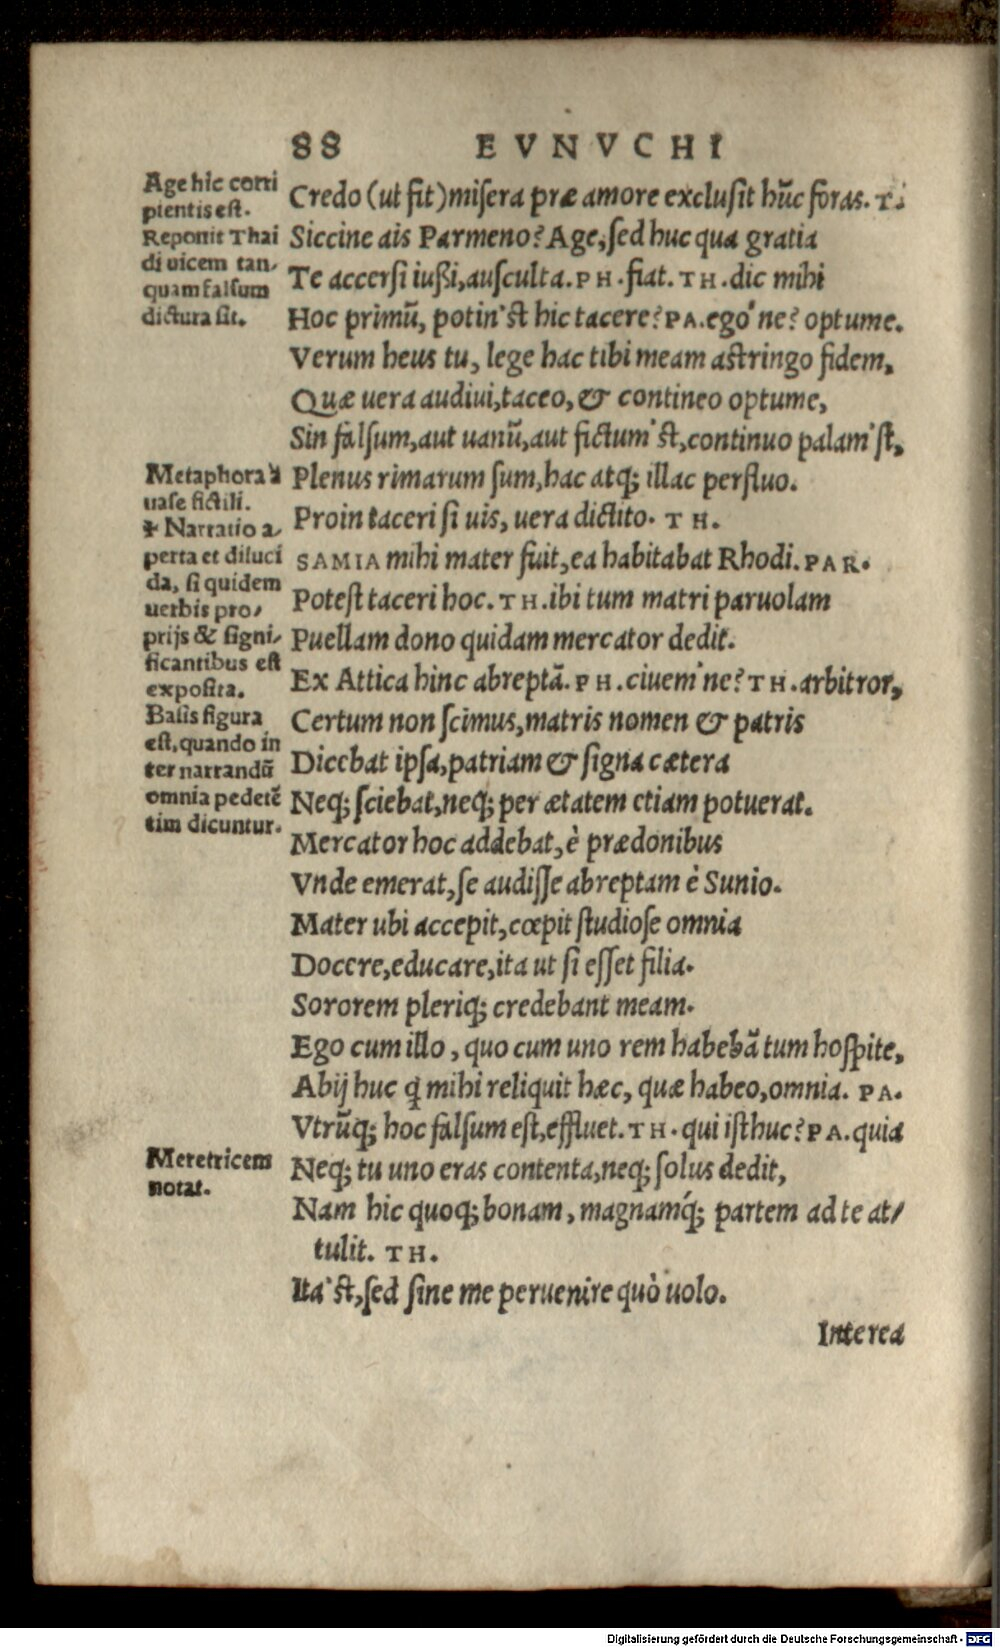 88 EVNVCHI
Age hic corri
pientis est.
Reponit Thai
di uicem tan-
quam falsum
dictura sit.
Credo (ut fit) misera præ amore exclusit hūc foras. T.
Siccine ais Parmeno? Age, sed huc qua gratia
Te accersi iußi, ausculta. PH. fiat. TH. dic mihi
Hoc primū, potin' st hic tacere? PA. ego' ne? optume.
Verum heus tu, lege hac tibi meam astringo fidem,
Quæ uera audiui, taceo, & contineo optume,
Sin falsum, aut uanū, aut fictum' st, continuo palam' st,
Plenus rimarum sum, hac atq; illac perfluo.
Proin taceri si uis, uera dictito. TH.
Metaphora à
uase fictili.
✝ Narratio a-
perta et diluci
da, si quidem
uerbis pro-
prijs & signi-
ficantibus est
exposita.
Basis figura
est, quando in
ter narrandū
omnia pedetē
tim dicuntur.
SAMIA mihi mater fuit, ea habitabat Rhodi. PAR.
Potest taceri hoc. TH. ibi tum matri paruolam
Puellam dono quidam mercator dedit.
Ex Attica hinc abreptā. PH. ciuem' ne? TH. arbitror,
Certum non scimus, matris nomen & patris
Dicebat ipsa, patriam & signa cætera
Neq; sciebat, neq; per ætatem etiam potuerat.
Mercator hoc addebat, è prædonibus
Vnde emerat, se audisse abreptam è Sunio.
Mater ubi accepit, cœpit studiose omnia
Docere, educare, ita ut si esset filia.
Sororem pleriq; credebant meam.
Ego cum illo, quo cum uno rem habebā tum hospite,
Abij huc q̃ mihi reliquit hæc, quæ habeo, omnia. PA.
Vtrūq; hoc falsum est, effluet. TH. qui isthuc? PA. quia
Meretricem
notat.
Neq; tu uno eras contenta, neq; solus dedit,
Nam hic quoq; bonam, magnamq́; partem ad te at-
tulit. TH.
Ita' st, sed sine me peruenire quò uolo.
Interea
Digitalisierung gefördert durch die Deutsche Forschungsgemeinschaft - DFG